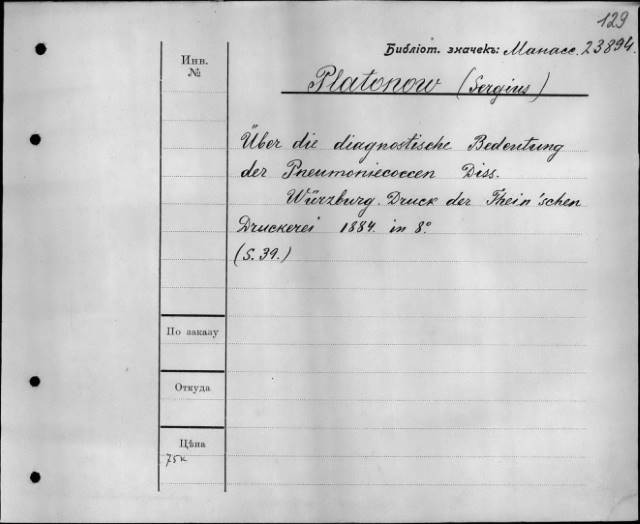 129
Библіот. значекъ: Манасс. 23894.
Инв. №
Platonow (Sergius)
Über die diagnostische Bedeutung
der Pneumoniecoccen Diss.
Würzburg. Druck der Thein'schen
Druckerei 1884. in 8°
(S. 31.)
По заказу
Откуда
Цѣна
75к